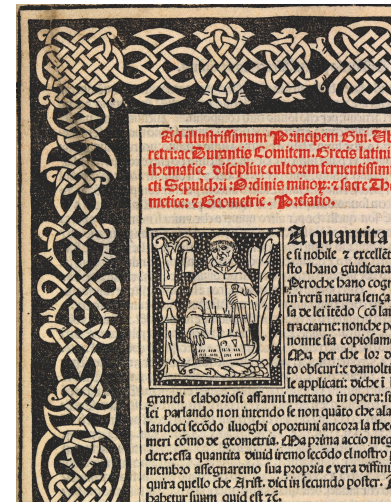 Ad illustrissimum Principem Gui. Ub
retri: ac Durantis Comitem. Grecis latini
thematice discipline cultorem feruentissim
cti Sepulchri: Ordinis minoꝝ: ⁊ sacre The
metice: ⁊ Geometrie. Prefatio.
A quantita
e si nobile ⁊ excellēt
sto lhano giudicata
Peroche hano cogn
in reꝝ natura sença
sa de lei itēdo (cō la
tractarne: nonche p
nonne sia copiosam
Ma per che lor d
ro obscuri: e damolti
le applicati: diche i
grandi elaboriosi affanni mettano in opera: si
lei parlando non intendo se non quāto che ala
landoci secōdo iluoghi oportuni ancora la theo
meri cōmo de geometria. Ma prima accio meg
dere: essa quantita diuid iremo secōdo el nostro
membro assegnaremo sua propria e vera diffin
quira quello che Arist. dici in secundo poster.
habetur suum quid est ⁊c.